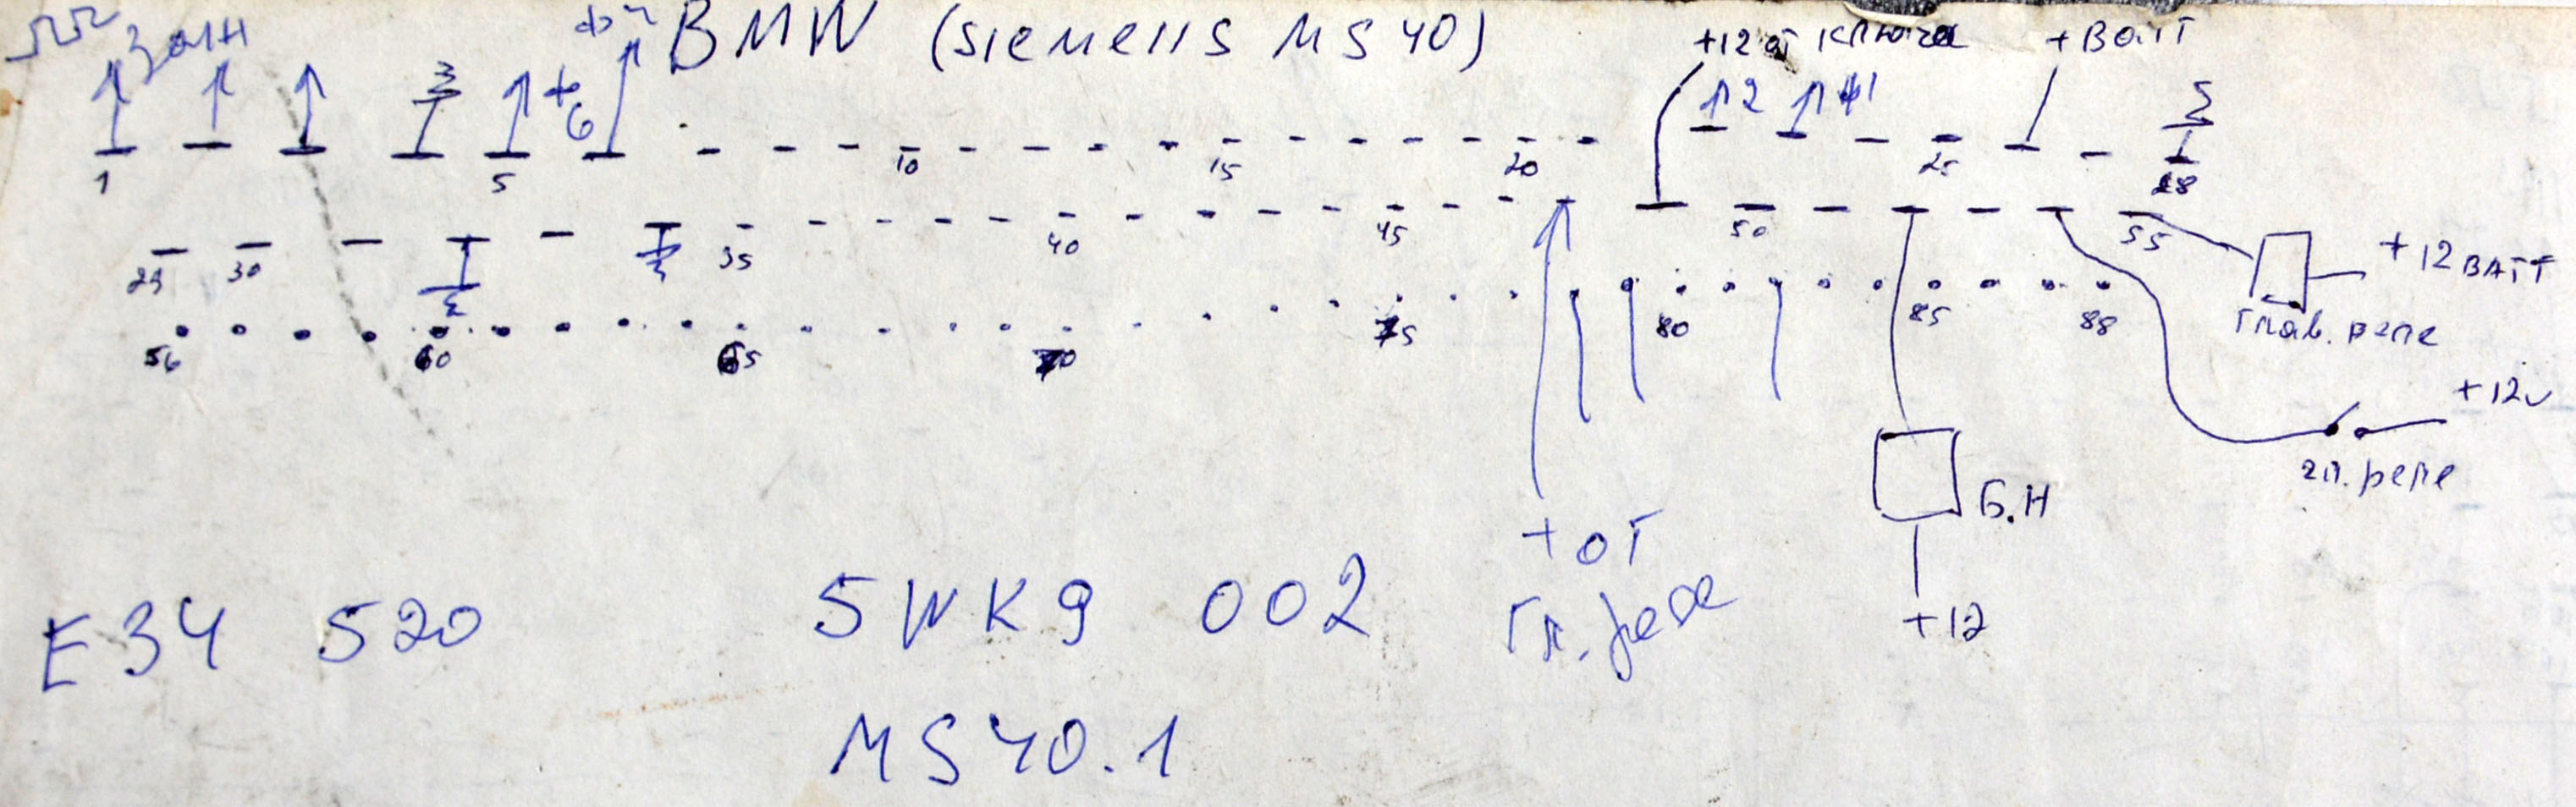 BMW (siemens MS 40)
+12 от ключа
+ Батт
2
1
6
1 5 10 15 20 25 28
29 30 35 40 45 50 55
+12 ВАТТ
Глав. реле
56 60 65 70 75 80 85 88
+12v
гл. реле
Б.Н
+12
+ от
Гл. реле
E34 520
5WK9 002
MS40.1